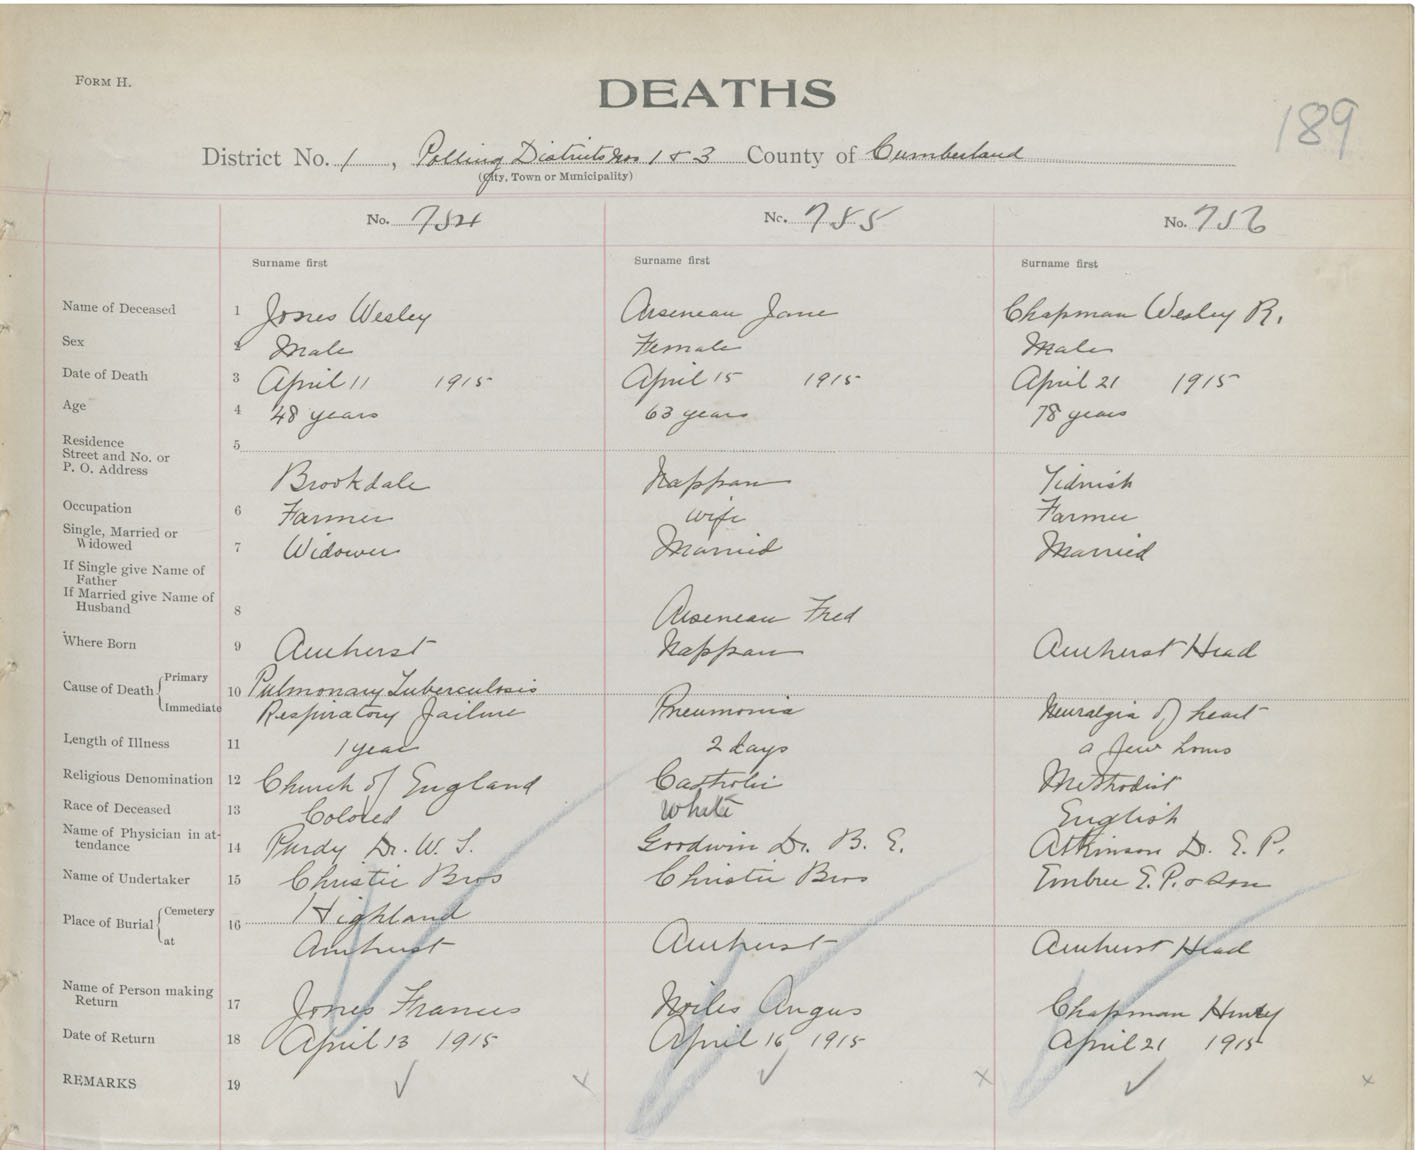 FORM H.
DEATHS
189
District No. 1, Polling Districts Nos 1 & 3 County of Cumberland
(City, Town or Municipality)
No. 784 No. 785 No. 786
Surname first Surname first Surname first
Name of Deceased 1 Jones Wesley Arseneau Jane Chapman Wesley R.
Sex 2 Male Female Male
Date of Death 3 April 11 1915 April 15 1915 April 21 1915
Age 4 48 years 63 years 78 years
Residence
Street and No. or 5
P. O. Address
Brookdale Nappan Tidnish
Occupation 6 Farmer Wife Farmer
Single, Married or
Widowed 7 Widower Married Married
If Single give Name of
Father
If Married give Name of
Husband 8 Arseneau Fred
Where Born 9 Amherst Nappan Amherst Head
Cause of Death Primary 10 Pulmonary Tuberculosis
Immediate Respiratory Failure Pneumonia Neuralgia of heart
Length of Illness 11 1 year 2 days a few hours
Religious Denomination 12 Church of England Catholic Methodist
Race of Deceased 13 Colored White English
Name of Physician in at-
tendance 14 Purdy Dr. W. S. Goodwin Dr. B. E. Atkinson Dr. E. P.
Name of Undertaker 15 Christie Bros Christie Bros Embree E. P. & Son
Place of Burial Cemetery 16 Highland
at Amherst Amherst Amherst Head
Name of Person making
Return 17 Jones Frances Noiles Angus Chapman Henry
Date of Return 18 April 13 1915 April 16 1915 April 21 1915
REMARKS 19 ✓ x ✓ x ✓ x